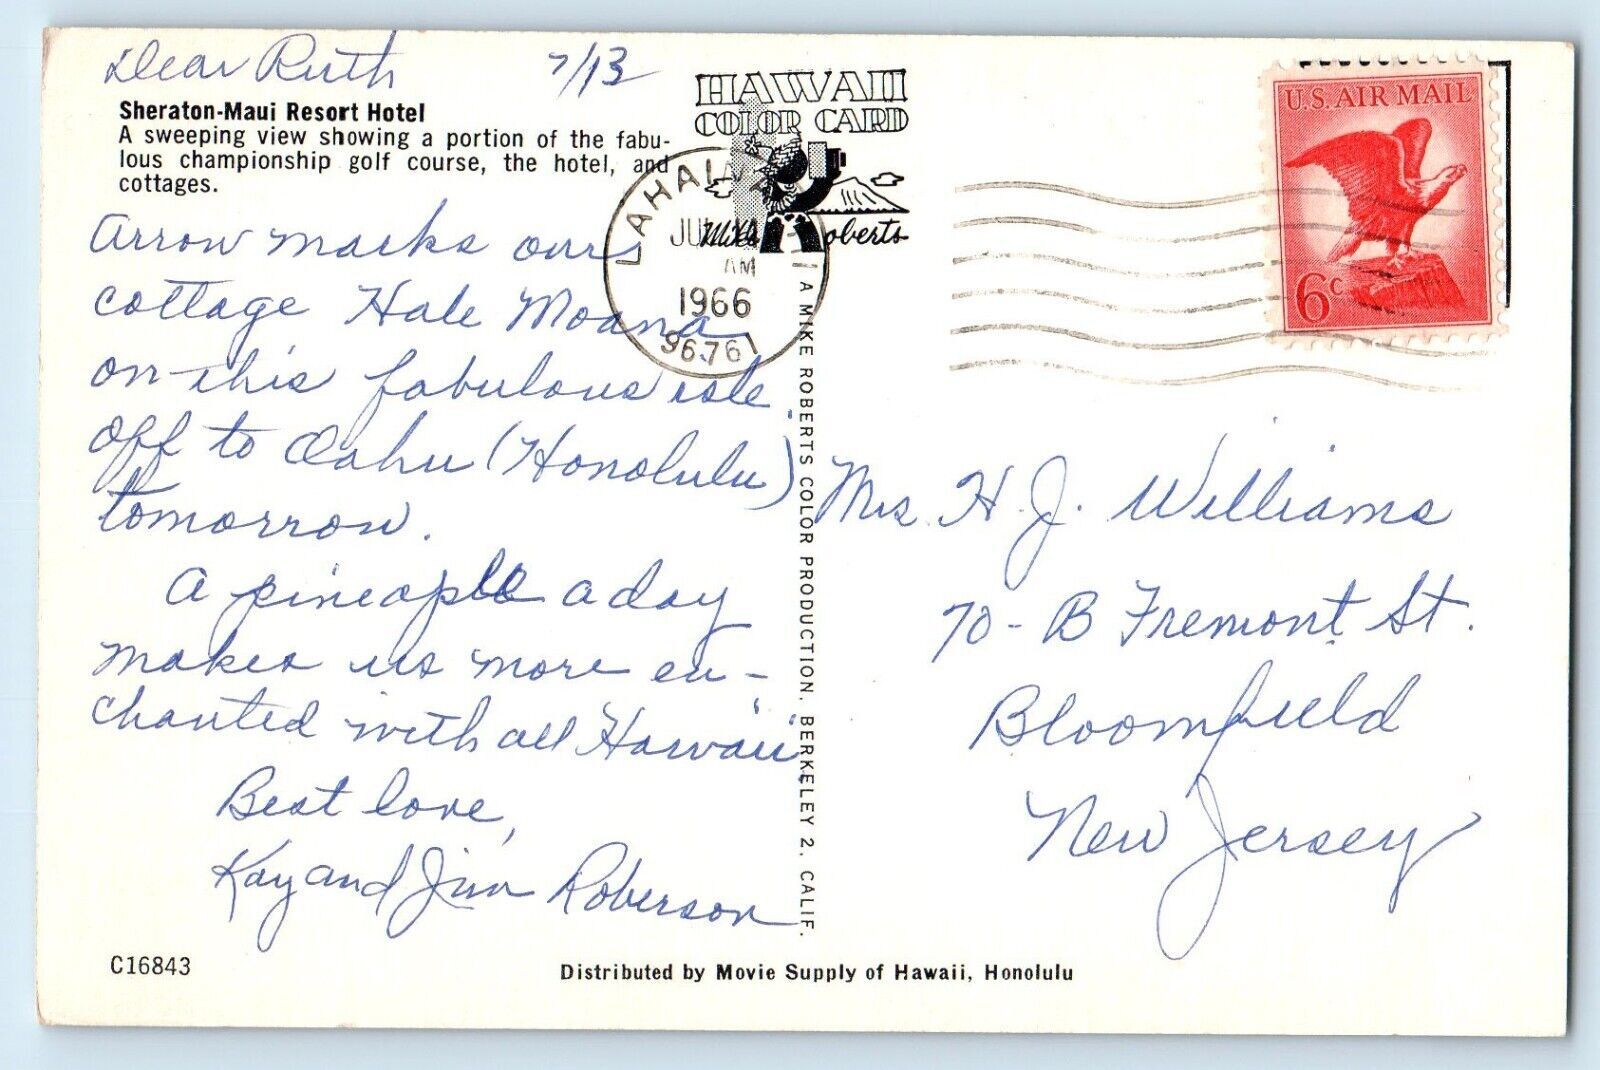 Dear Ruth 7/13
Sheraton-Maui Resort Hotel
A sweeping view showing a portion of the fabu-
lous championship golf course, the hotel, and
cottages.
Arrow marks our
cottage Hale Moana
on this fabulous isle.
Off to Oahu (Honolulu)
tomorrow.
A pineapple a day
makes us more en-
chanted with all Hawaii.
Best love,
Kay and Jim Roberson
C16843
HAWAII
COLOR CARD
Mike Roberts
LAHAINA
AM
1966
96761
A MIKE ROBERTS COLOR PRODUCTION, BERKELEY 2, CALIF.
U.S. AIR MAIL
6c
Mrs. H. J. Williams
70-B Fremont St.
Bloomfield
New Jersey
Distributed by Movie Supply of Hawaii, Honolulu